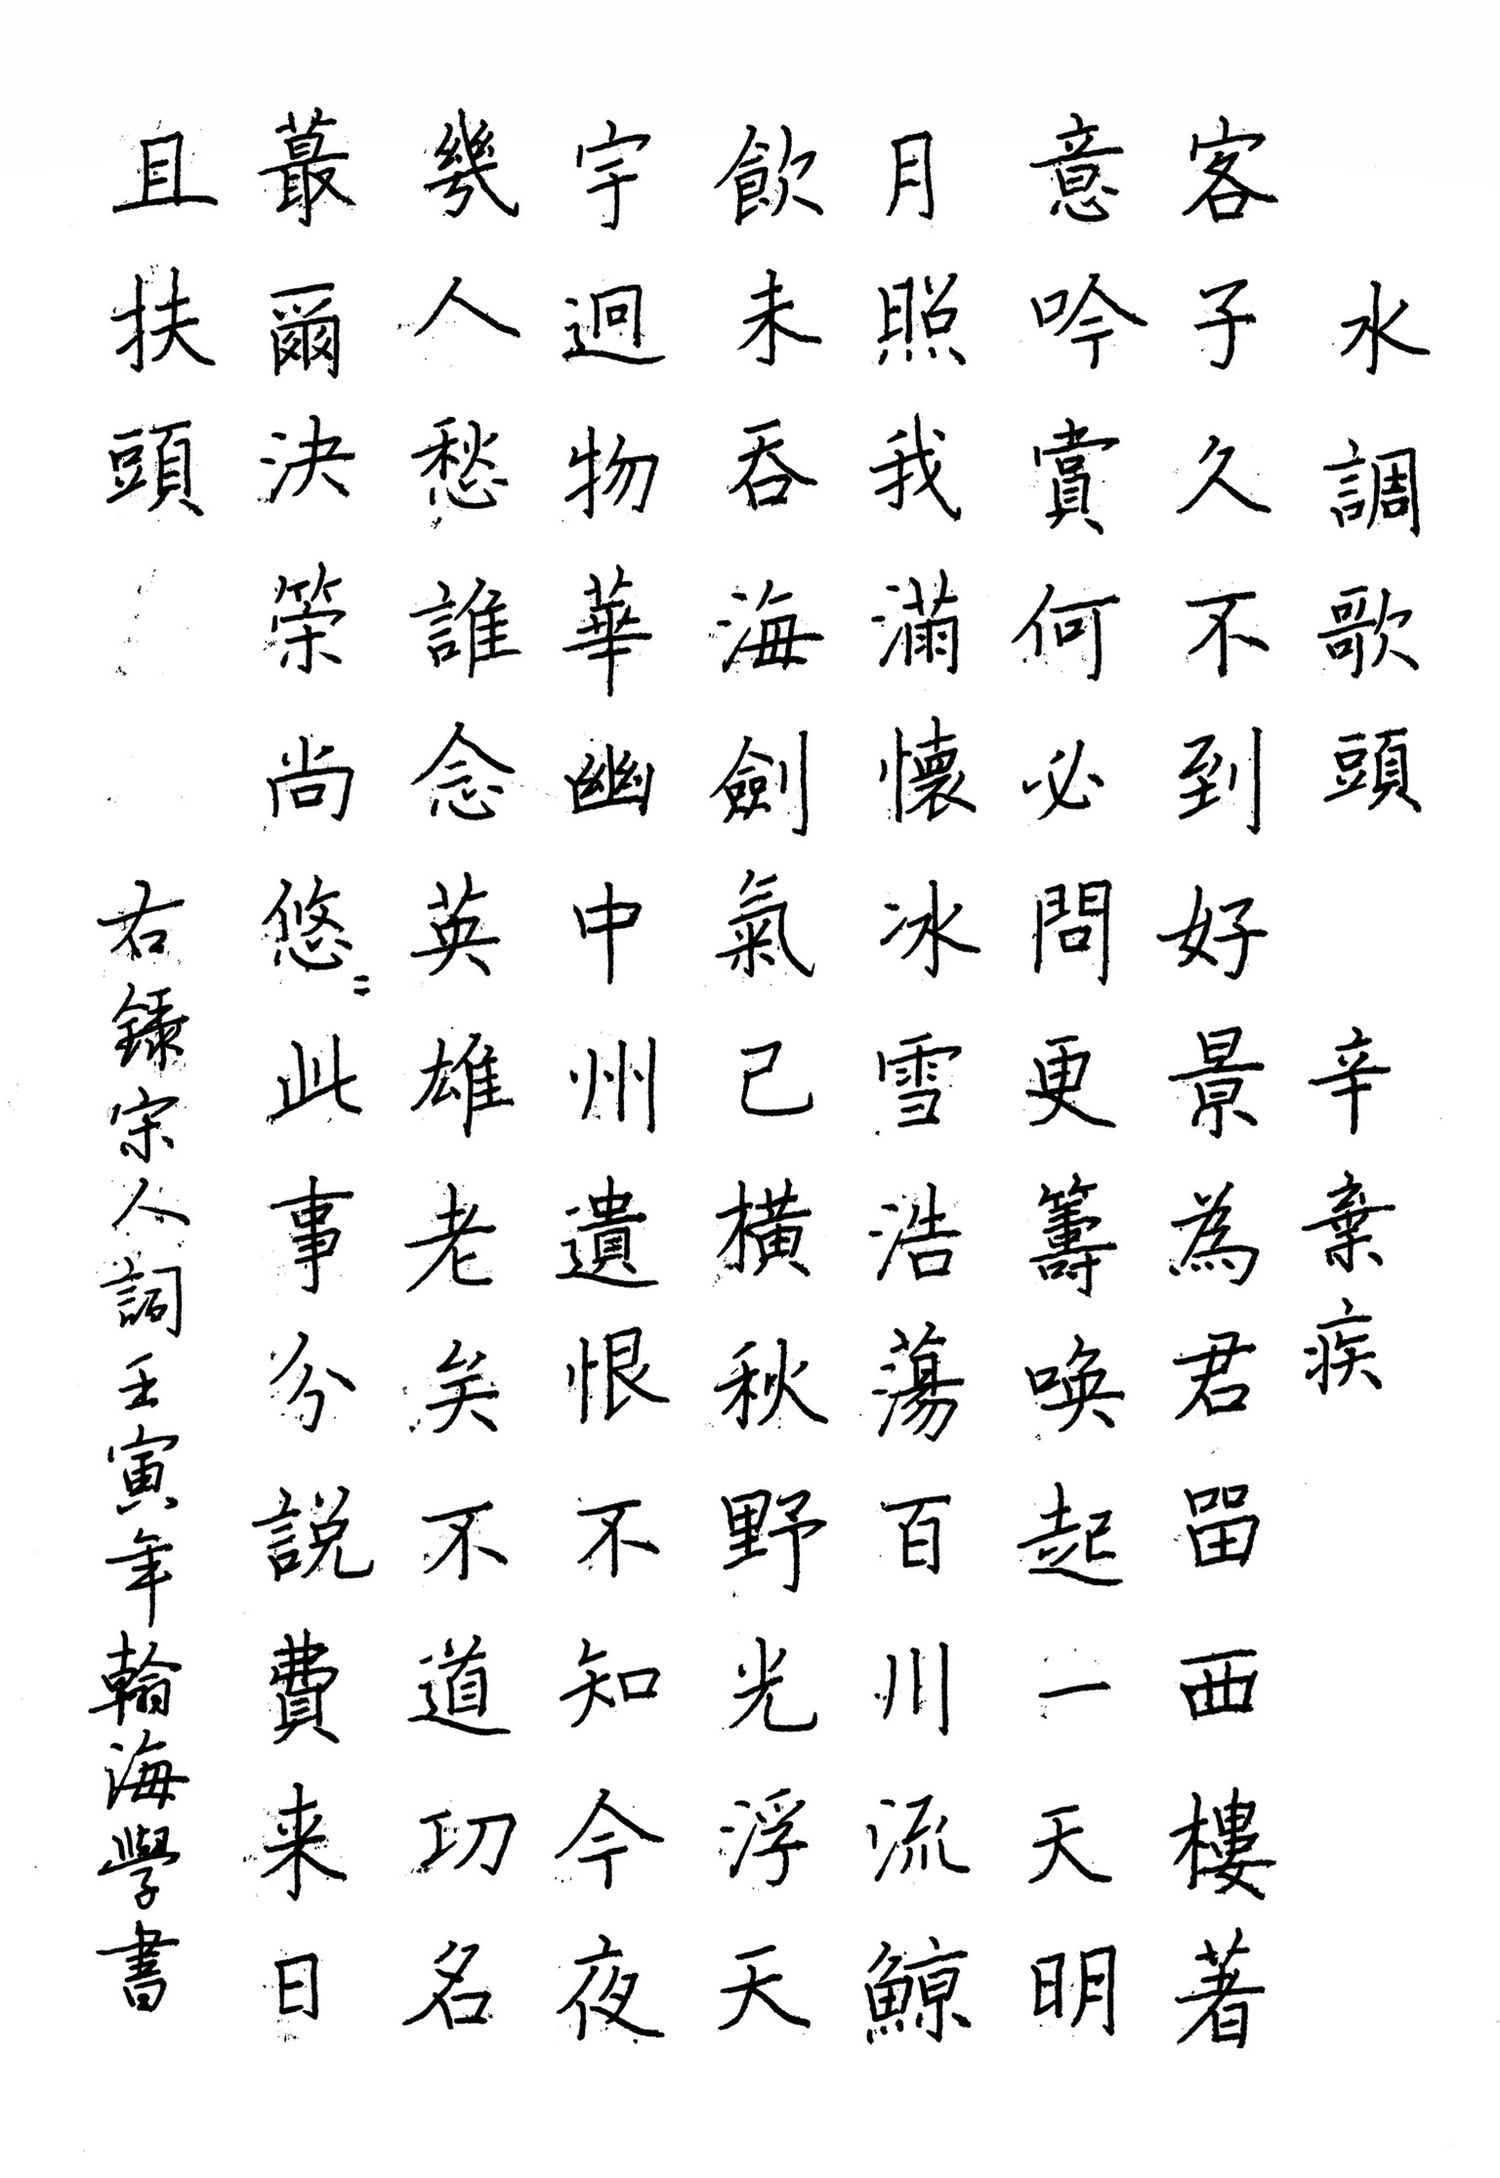 水調歌頭 辛棄疾
客子久不到好景為君畱西樓著
意吟賞何必問更籌喚起一天明
月照我滿懷冰雪浩蕩百川流鯨
飲未吞海劍氣已橫秋野光浮天
宇迥物華幽中州遺恨不知今夜
幾人愁誰念英雄老矣不道功名
蕞爾決策尚悠〻此事分說費来日
且扶頭 右錄宋人詞壬寅年翰海學書